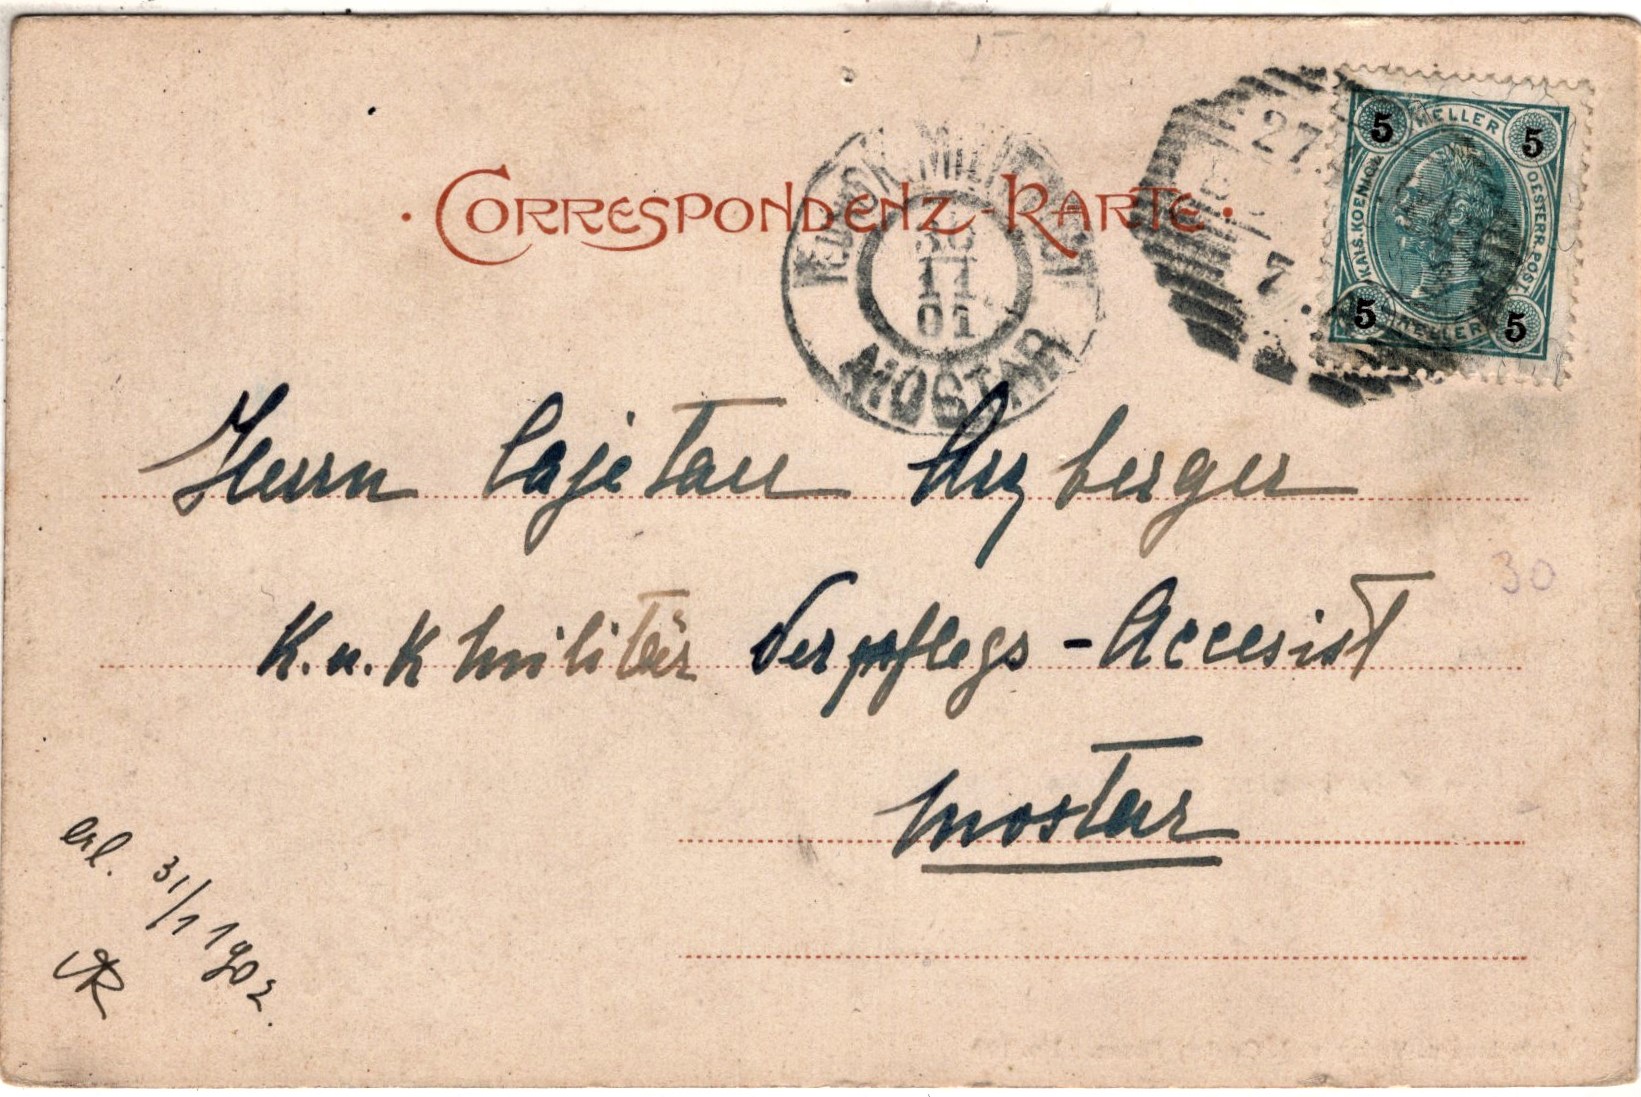 · CORRESPONDENZ-KARTE ·
K.u.K. MILIT. POST
30
11
01
MOSTAR
27
7
5 HELLER 5
KAIS.KOENIGL.
OESTERR.POST
5 HELLER 5
Herrn Cajetan Arzberger
K. u. K Militär Verpflegs - Accesist
Mostar
30
erl. 31/1 1902.
AR